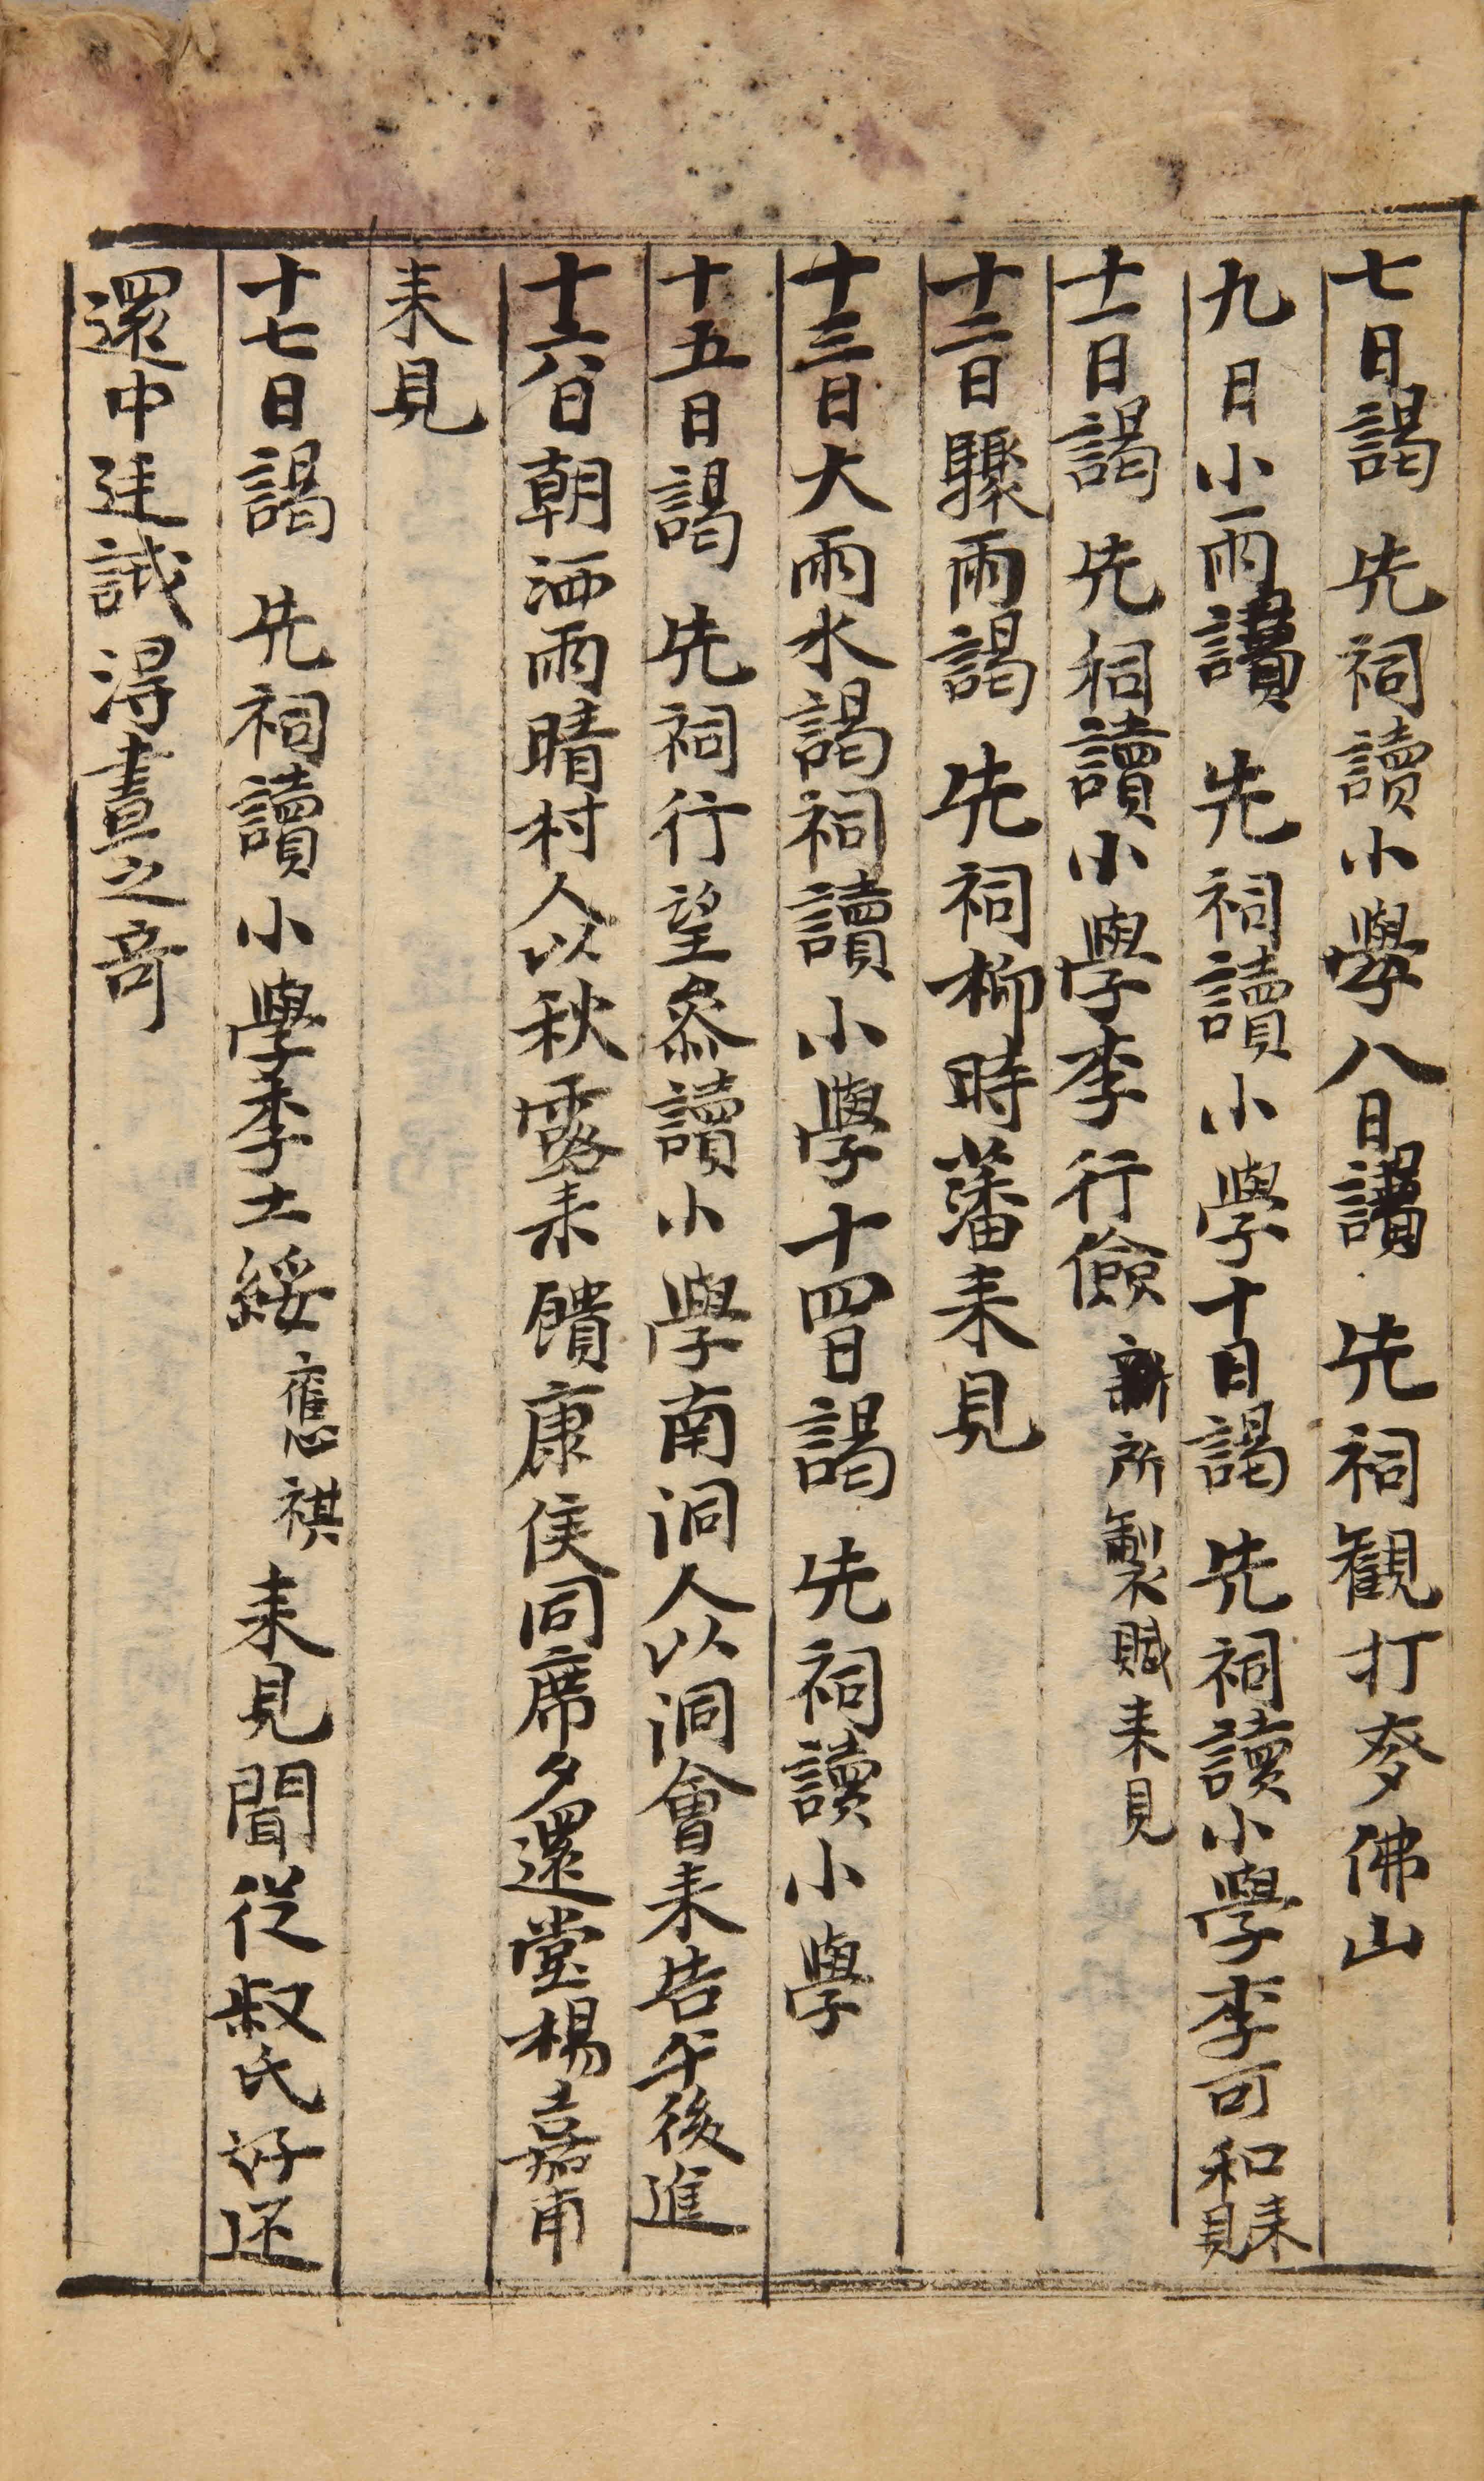 七日謁 先祠讀小學八日謁 先祠観打麥佛山
九日小雨謁 先祠讀小學十日謁 先祠讀小學李可和来見
十一日謁 先祠讀小學李行儉 新所製賦来見
十二日驟雨謁 先祠柳時藩来見
十三日大雨水謁祠讀小學十四日謁 先祠讀小學
十五日謁 先祠行望叅讀小學南洞人以洞會来告午後進
十六日朝洒雨晴村人以秋露来饋康侯同席夕還堂楊嘉甫
来見
十七日謁 先祠讀小學李士綏 應祺 来見聞從叔氏好还
還中廷誠得晝之奇